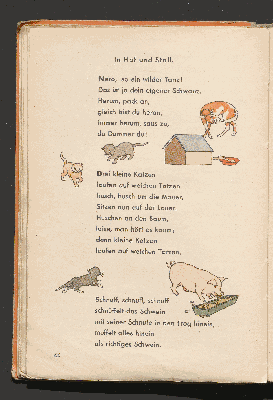 In Hut und Stall.
Nero, so ein wilder Tanz!
Das ist ja dein eigener Schwanz.
Herum, pack an,
gleich bist du heran,
immer herum, saus zu,
du Dummer du!
Drei kleine Katzen
laufen auf weichen Tatzen
husch, husch um die Mauer,
Sitzen nun auf der Lauer
Huschen an den Baum,
leise, man hört es kaum,
denn kleine Katzen
laufen auf weichen Tatzen.
Schnuff, schnuff, schnuff
schnüffelt das Schwein
mit seiner Schnute in den Trog hinein,
müffelt alles hinein
als richtiges Schwein.